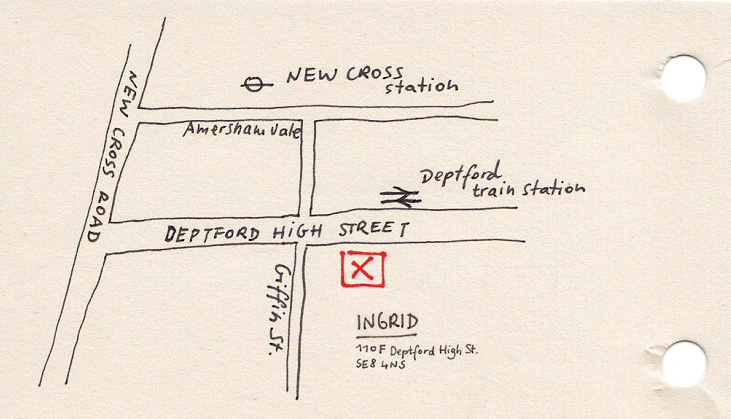 NEW CROSS
station
NEW CROSS ROAD
Amersham Vale
Deptford
train station
DEPTFORD HIGH STREET
Giffin St.
X
INGRID
110F Deptford High St.
SE8 4NS